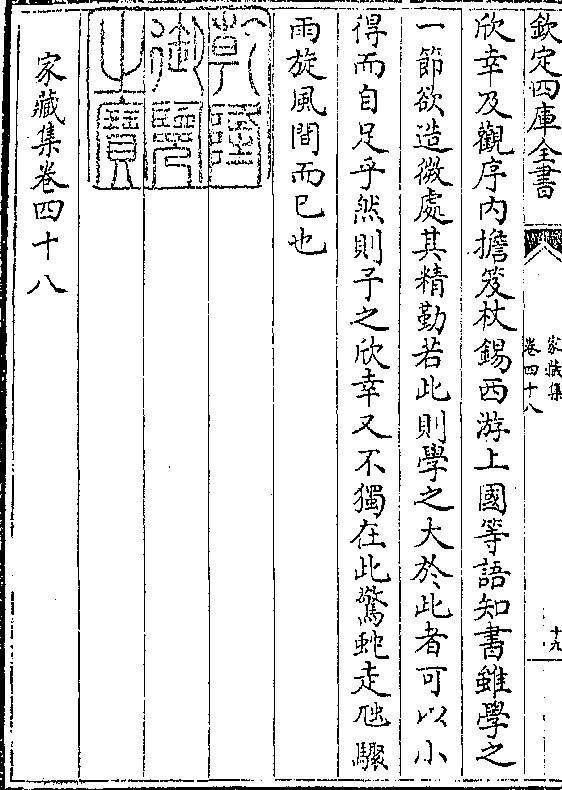 欽定四庫全書
家藏集
卷四十八
十九
欣幸及觀序內擔笈杖錫西游上國等語知書雖學之
一節欲造微處其精勤若此則學之大於此者可以小
得而自足乎然則予之欣幸又不獨在此驚蛇走虺驟
雨旋風間而已也
乾隆
御覽
之寶
家藏集卷四十八